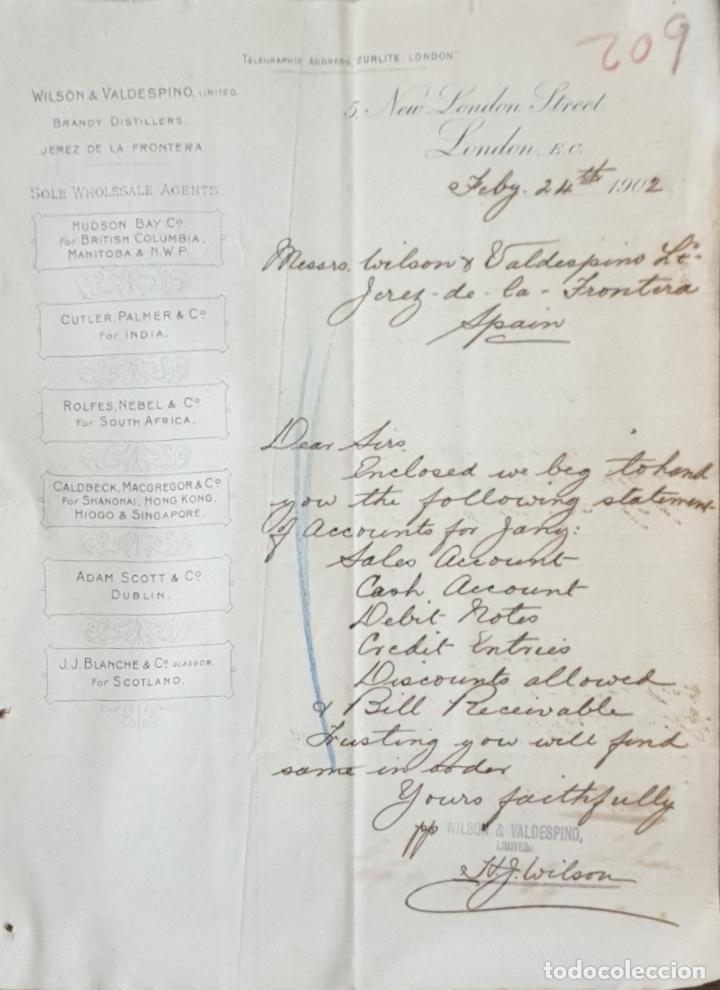 209
TELEGRAPHIC ADDRESS, "ZURLITE, LONDON"
WILSON & VALDESPINO, LIMITED.
BRANDY DISTILLERS.
JEREZ DE LA FRONTERA.
SOLE WHOLESALE AGENTS.
HUDSON BAY Co
FOR BRITISH COLUMBIA,
MANITOBA & N.W.P.
CUTLER, PALMER & Co
FOR INDIA.
ROLFES, NEBEL & Co
FOR SOUTH AFRICA.
CALDBECK, MACGREGOR & Co
FOR SHANGHAI, HONG KONG,
HIOGO & SINGAPORE.
ADAM SCOTT & Co
DUBLIN.
J.J. BLANCHE & Co GLASGOW.
FOR SCOTLAND.
5, New London Street,
London, E.C.
Feby. 24th 1902
Messrs. Wilson & Valdespino Ld.
Jerez-de-la-Frontera
Spain
Dear Sirs
Enclosed we beg to hand
you the following statement
of Accounts for Jany:
Sales Account
Cash Account
Debit Notes
Credit Entries
Discounts allowed
& Bill Receivable
Trusting you will find
same in order
Yours faithfully
pp WILSON & VALDESPINO,
LIMITED.
H.J. Wilson
todocoleccion